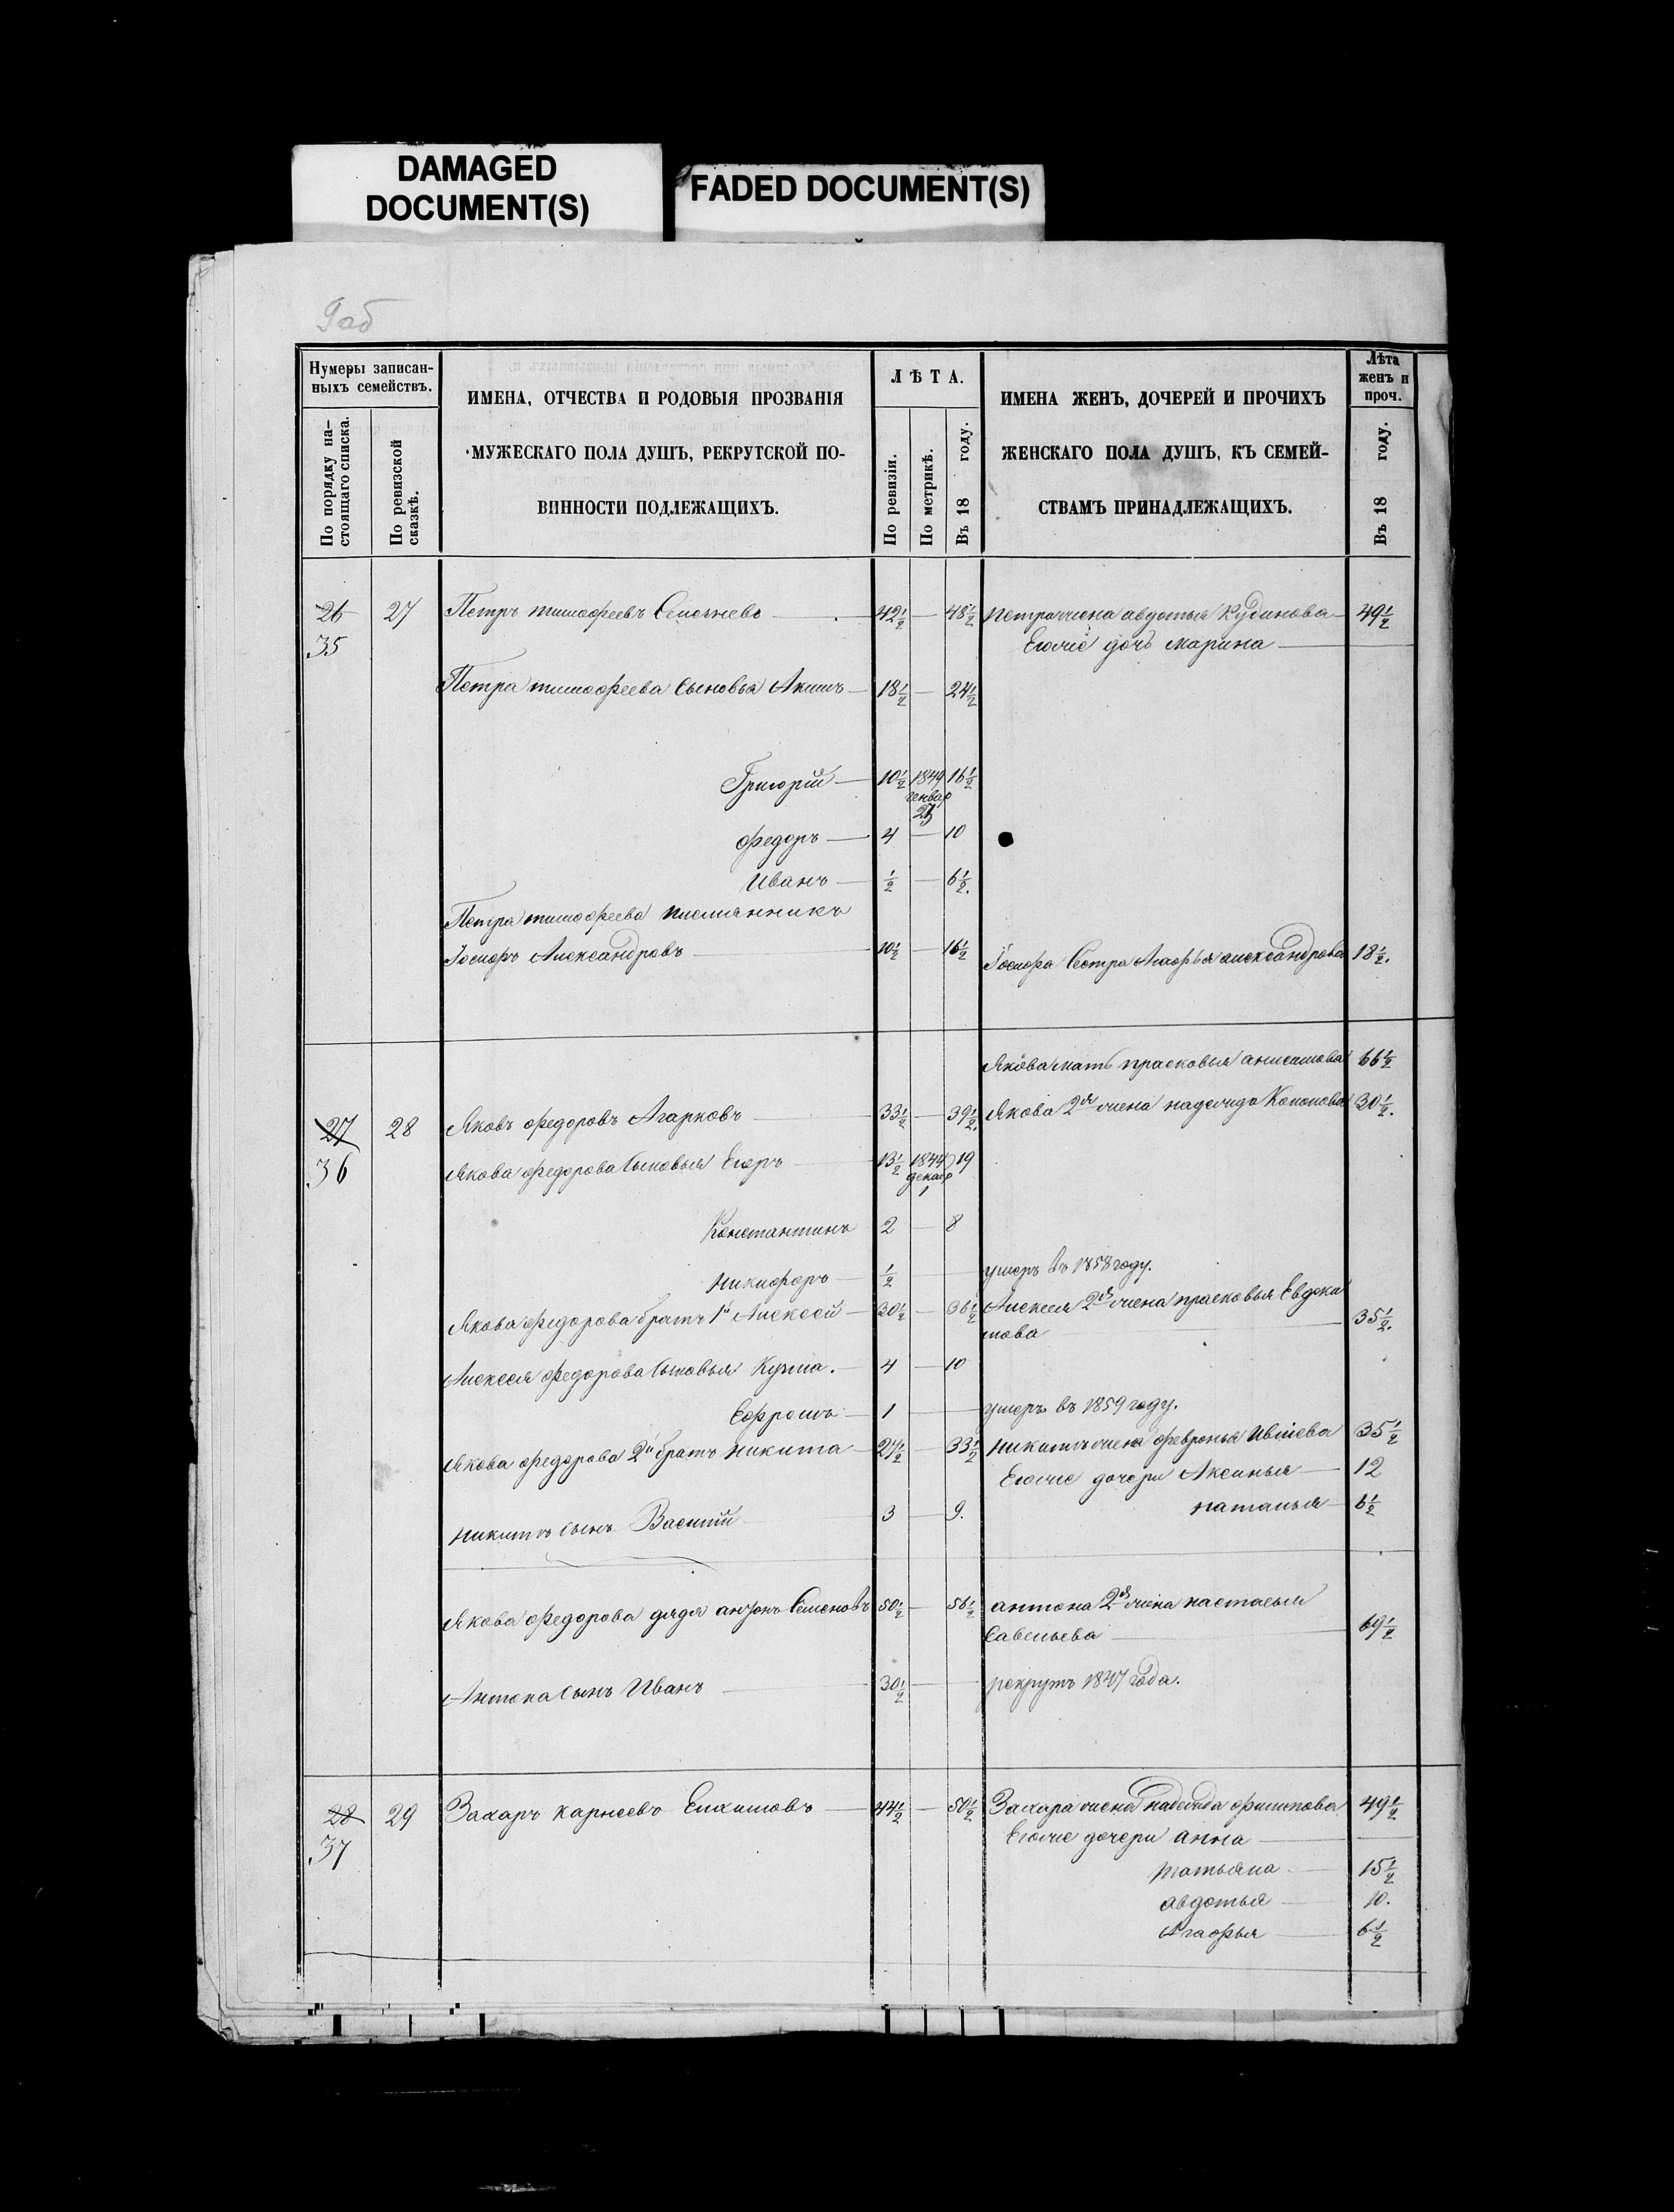 DAMAGED
DOCUMENT(S)
FADED DOCUMENT(S)
9об
Нумеры записан-
ныхъ семействъ.
По порядку на-
стоящаго списка.
По ревизской
сказкѣ.
ИМЕНА, ОТЧЕСТВА И РОДОВЫЯ ПРОЗВАНІЯ
МУЖЕСКАГО ПОЛА ДУШЪ, РЕКРУТСКОЙ ПО-
ВИННОСТИ ПОДЛЕЖАЩИХЪ.
ЛѢТА.
По ревизіи.
По метрикѣ.
Въ 18 году.
ИМЕНА ЖЕНЪ, ДОЧЕРЕЙ И ПРОЧИХЪ
ЖЕНСКАГО ПОЛА ДУШЪ, КЪ СЕМЕЙ-
СТВАМЪ ПРИНАДЛЕЖАЩИХЪ.
Лѣта
женъ и
проч.
Въ 18 году.
26 27 Петръ тимофеевъ 42½ — 48½ Петра жена авдотья Кудинова 49½
35 Егоже дочь марина —
Петра тимофеева Сыновья Акимъ — 18½ — 24½
Григорій — 10½ 1844 16½
генвар
23
федоръ — 4 — 10
Иванъ — ½ — 6½.
Петра тимофеева племянникъ
Іосифъ Александровъ 10½ — 16½ Іосифа Сестра Агафья александрова 18½.
Якова мать прасковья анисимова 66½
27 28 Яковъ федоровъ Агарковъ 33½ — 39½. Якова 2я жена надежда Кононова 30½.
36 Якова федорова Сыновья Егоръ 13½ 1844 19
декабр
1
Константинъ 2 — 8
Никифоръ — ½ умеръ въ 1858 году.
Якова федорова братъ 1й Алексей — 30½ — 36½ Алексея 2я жена прасковья Евдоки
мова 35½.
Алексея федорова Сыновья Кузма. — 4 — 10
Ефремъ — 1 умеръ въ 1859 году.
Якова федорова 2й братъ никита — 27½ — 33½ никиты жена февронья Ивлиева 35½
Егоже дочери Аксинья — 12
наталья — 6½
никиты Сынъ Василій 3 — 9.
Якова федорова дядя антонъ Семеновъ 50½ — 56½ антона 2я жена настасья
Савельева 69½
Антона Сынъ Иванъ 30½ — рекрутъ 1847 года.
28 29 Захаръ карнеевъ 44½ — 50½ Захара жена надежда филипова 49½
37 Егоже дочери анна —
татьяна — 15½
авдотья — 10.
Агафья — 6½